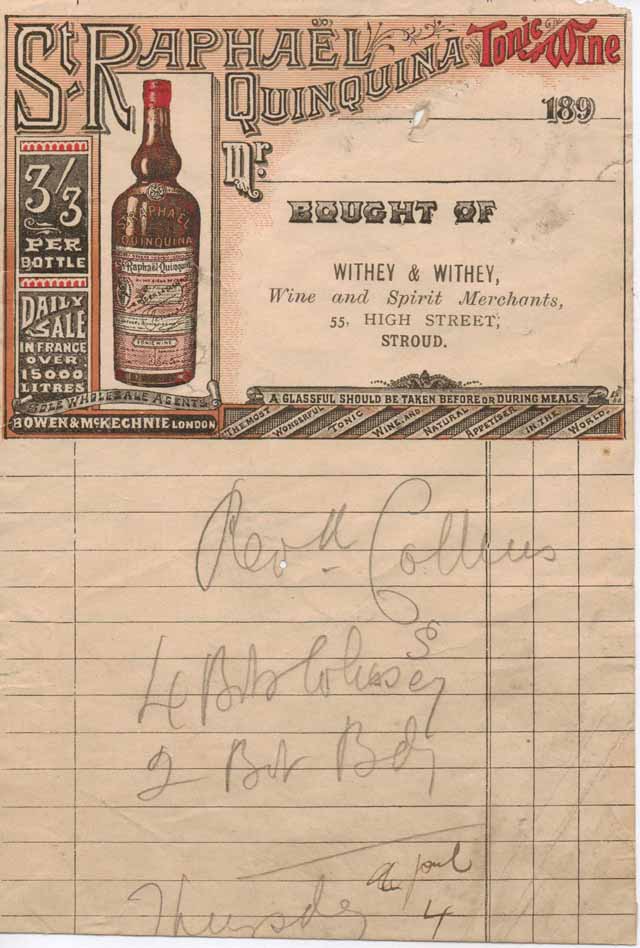 St. RAPHAËL
QUINQUINA
Tonic Wine
189
Mr.
3/3
PER
BOTTLE
DAILY
SALE
IN FRANCE
OVER
15000
LITRES
ST RAPHAËL
QUINQUINA
St Raphaël Quinquina
TONIC WINE
BOUGHT OF
WITHEY & WITHEY,
Wine and Spirit Merchants,
55, HIGH STREET,
STROUD.
A GLASSFUL SHOULD BE TAKEN BEFORE OR DURING MEALS.
SOLE WHOLESALE AGENTS
BOWEN & McKECHNIE LONDON
THE MOST WONDERFUL TONIC WINE AND NATURAL APPETISER IN THE WORLD.
Revd Collins
4 Bots Whiskey
2 Bot Bdy
Thursday April
4